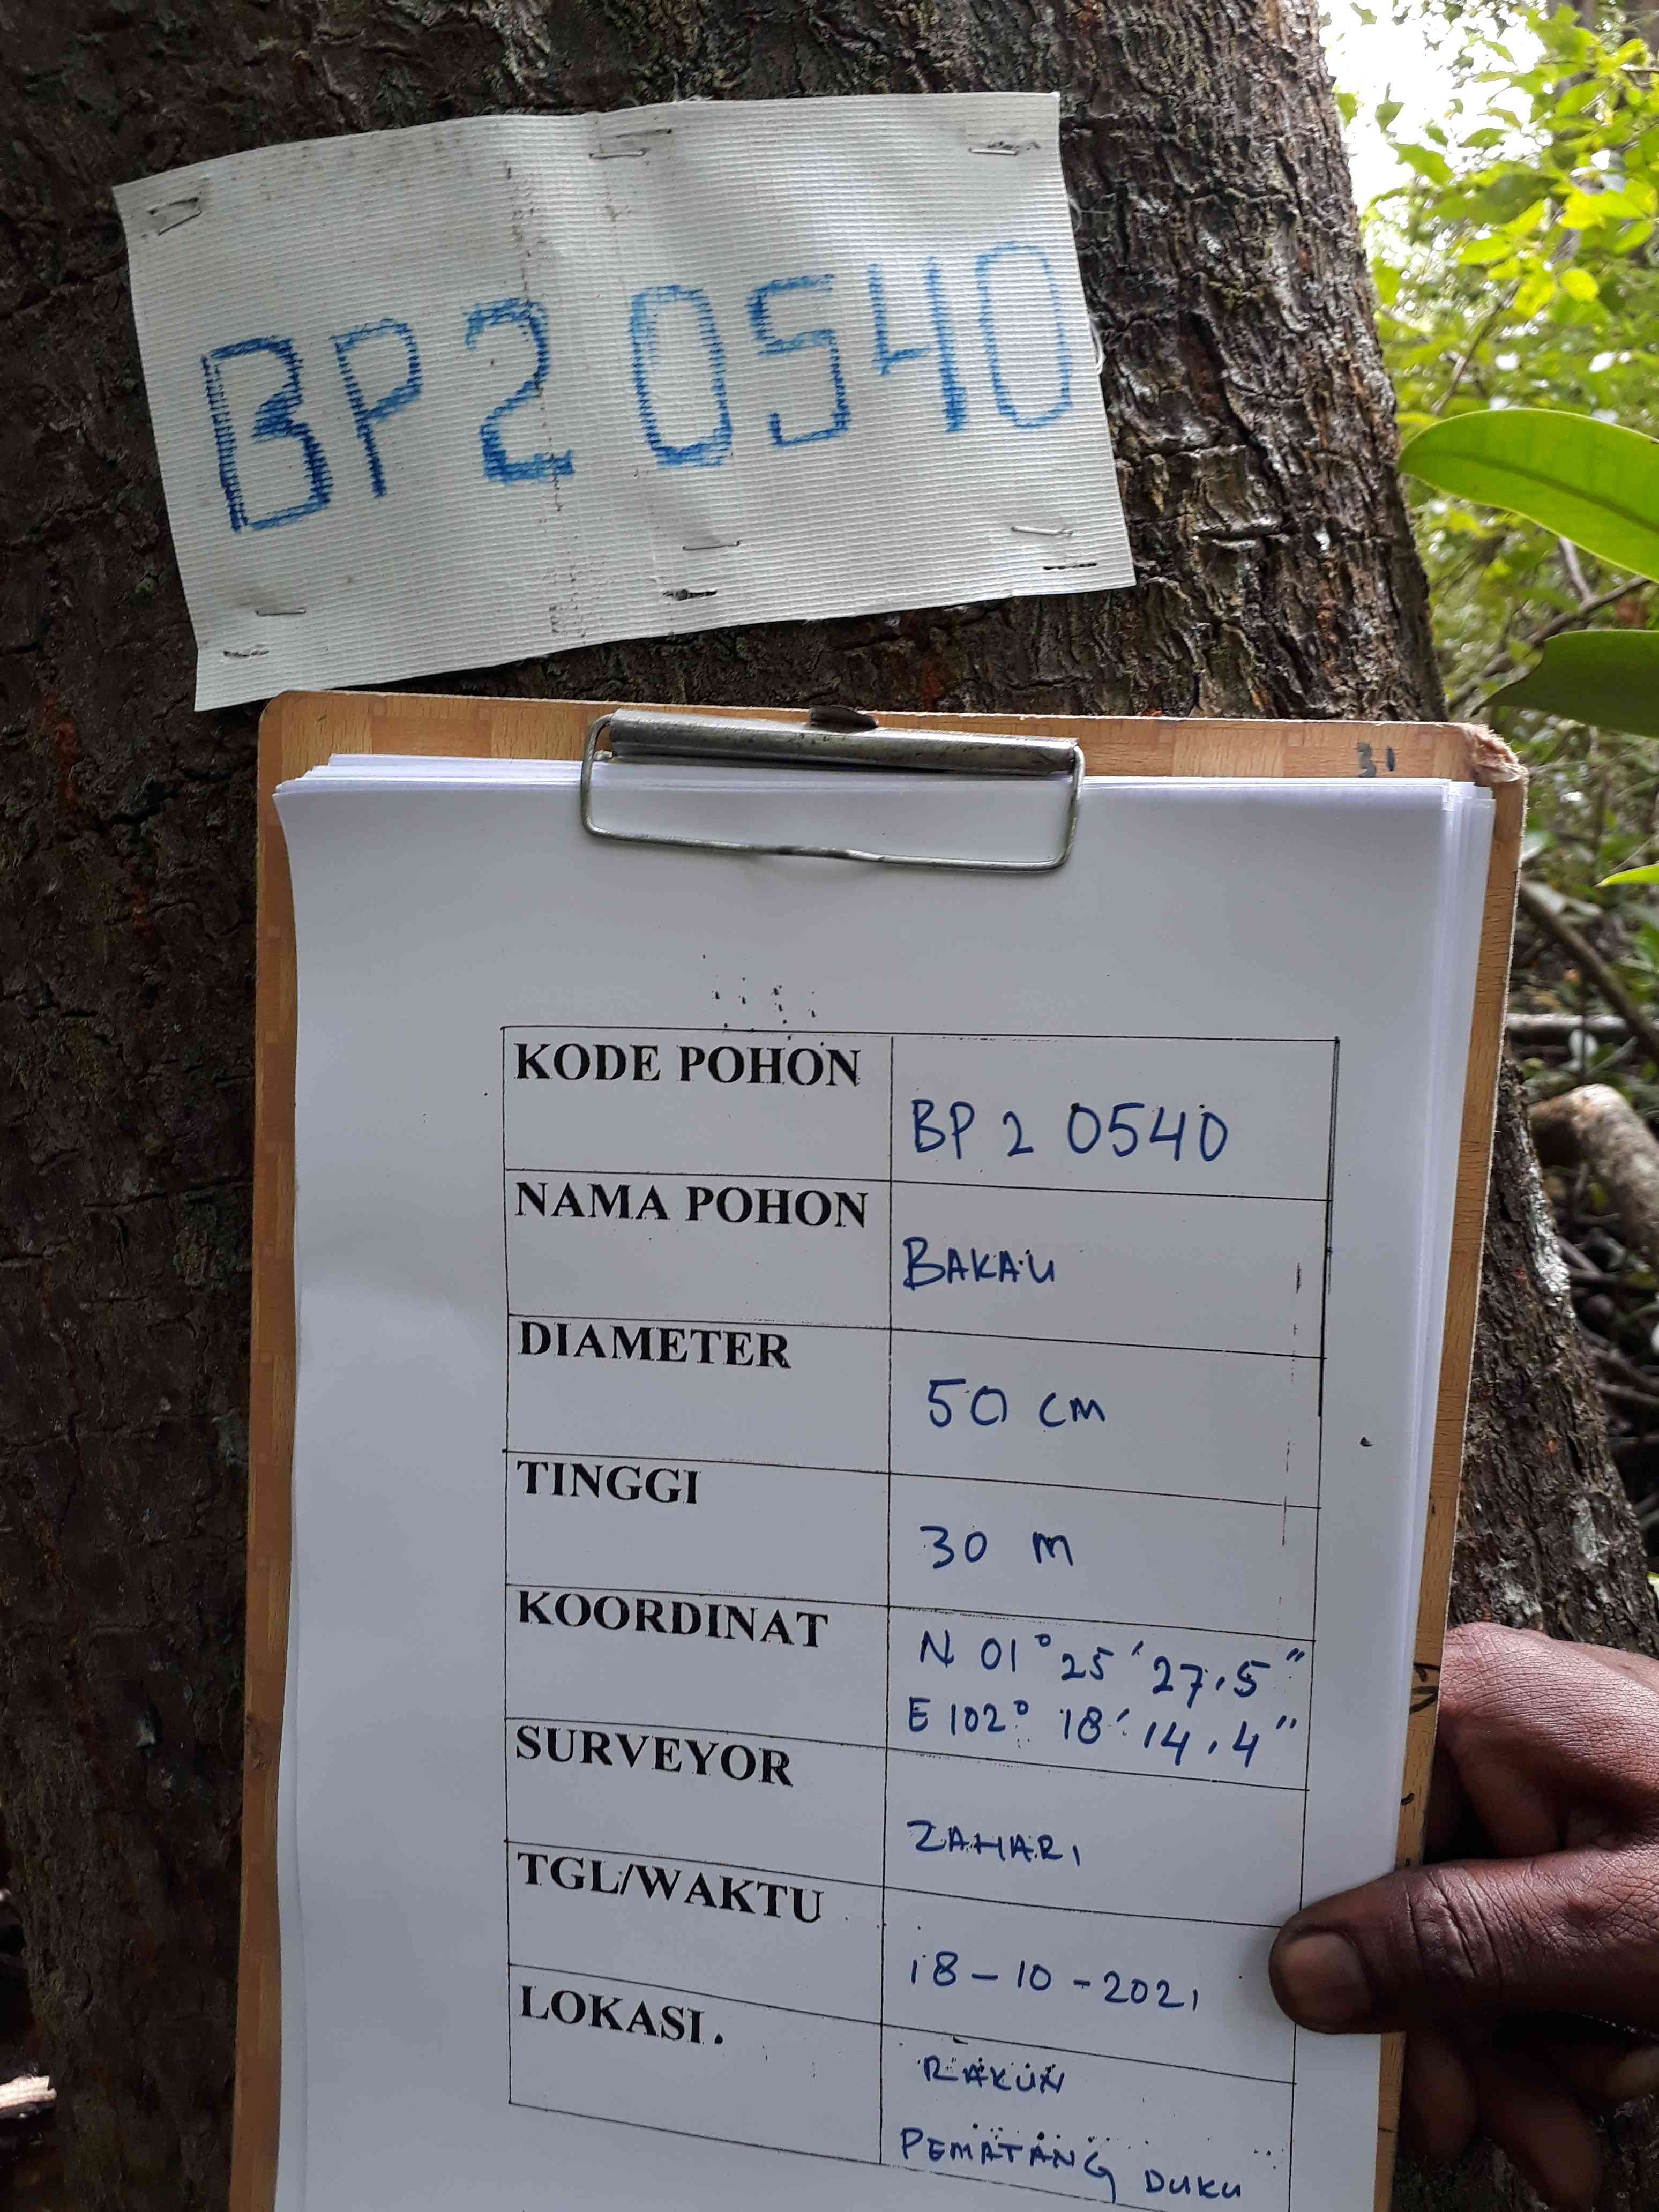 BP2 0540
31
KODE POHON
BP 2 0540
NAMA POHON
BAKAU
DIAMETER
50 cm
TINGGI
30 m
KOORDINAT
N 01° 25' 27.5"
E 102° 18' 14.4"
SURVEYOR
ZAHARI
TGL/WAKTU
18-10-2021
LOKASI.
RAKUN
PEMATANG DUKU